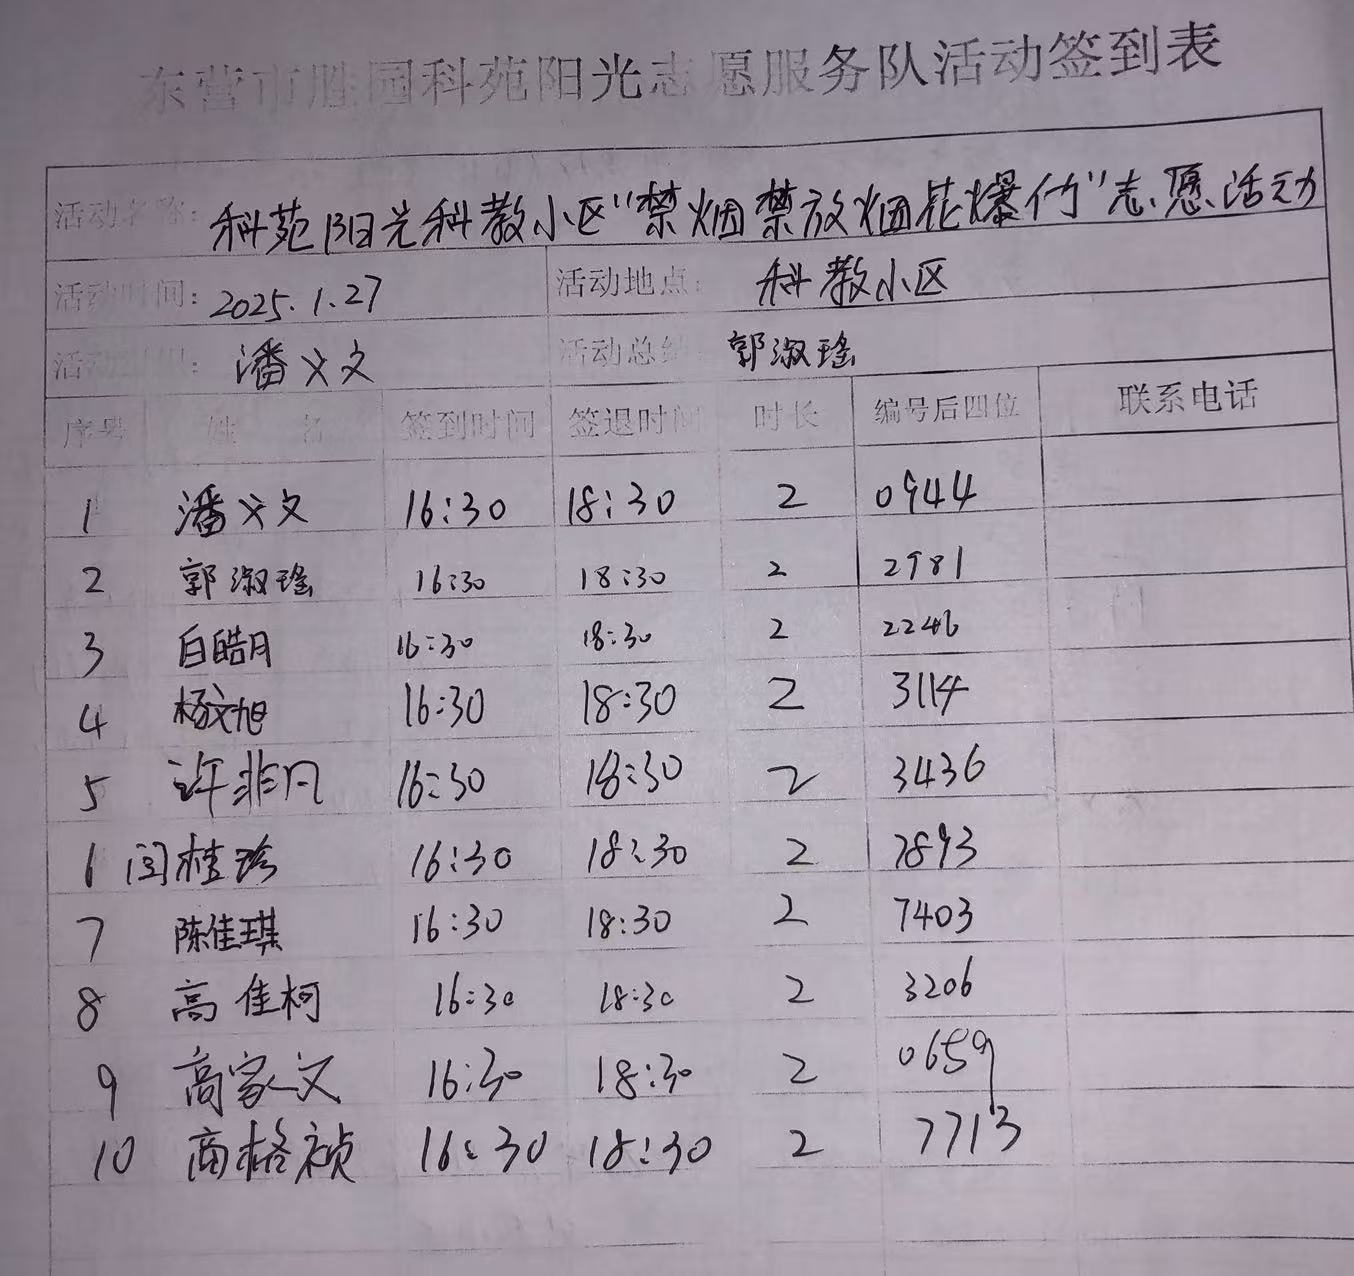 东营市胜园科苑阳光志愿服务队活动签到表
活动名称: 科苑阳光科教小区“禁烟禁放烟花爆竹”志愿活动
活动时间: 2025.1.27 活动地点: 科教小区
活动组织: 潘义文 活动总结 郭淑瑶
序号 姓 名 签到时间 签退时间 时长 编号后四位 联系电话
1 潘义文 16:30 18:30 2 0944
2 郭淑瑶 16:30 18:30 2 2981
3 白皓月 16:30 18:30 2 2246
4 杨文旭 16:30 18:30 2 3114
5 许非凡 16:30 18:30 2 3436
6 闫桂珍 16:30 18:30 2 7893
7 陈佳琪 16:30 18:30 2 7403
8 高佳柯 16:30 18:30 2 3206
9 高家文 16:30 18:30 2 0659
10 商格祯 16:30 18:30 2 7713